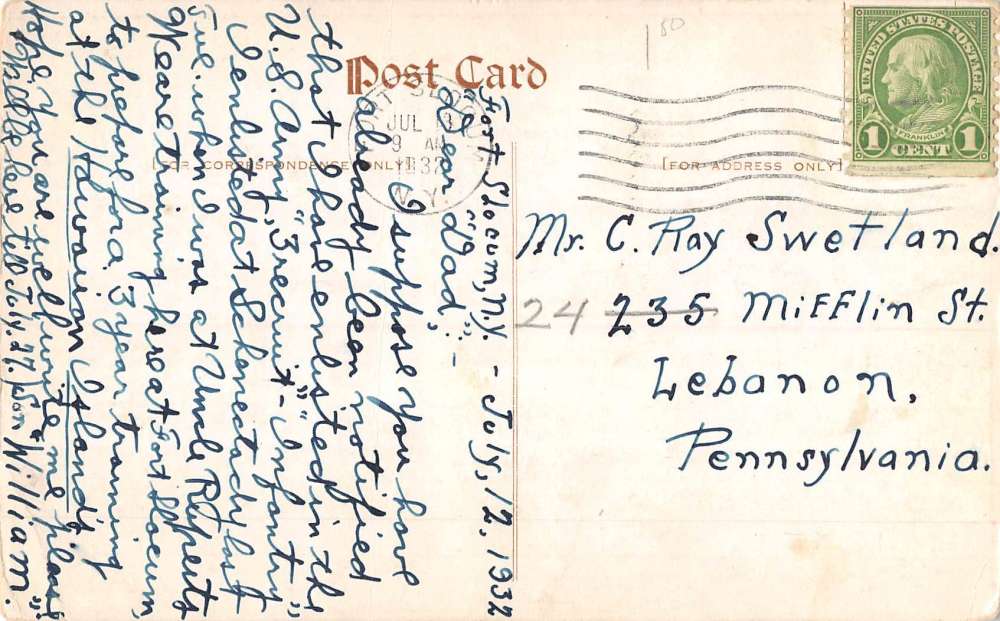 Post Card
[FOR CORRESPONDENCE ONLY]
[FOR ADDRESS ONLY]
UNITED STATES POSTAGE
FRANKLIN
1 CENT 1
JUL
9 AM
1932
1 50
Fort Slocum, N.Y. - July, 12, 1932
"Dear Dad," -
I suppose you have
already been notified
that I have enlisted in the
U.S. Army, "Recruit" - "Infantry"
I enlisted at Schenectady last
Tue. when I was at Uncle Ruperts
We are training here at Fort Slocum,
to prepare for a 3 year training
at the Hawaiian Islands.
Hope you are well, write me please
Will be here till July. 27. "Son William".
Mr. C. Ray Swetland.
24 235 Mifflin St.
Lebanon,
Pennsylvania.